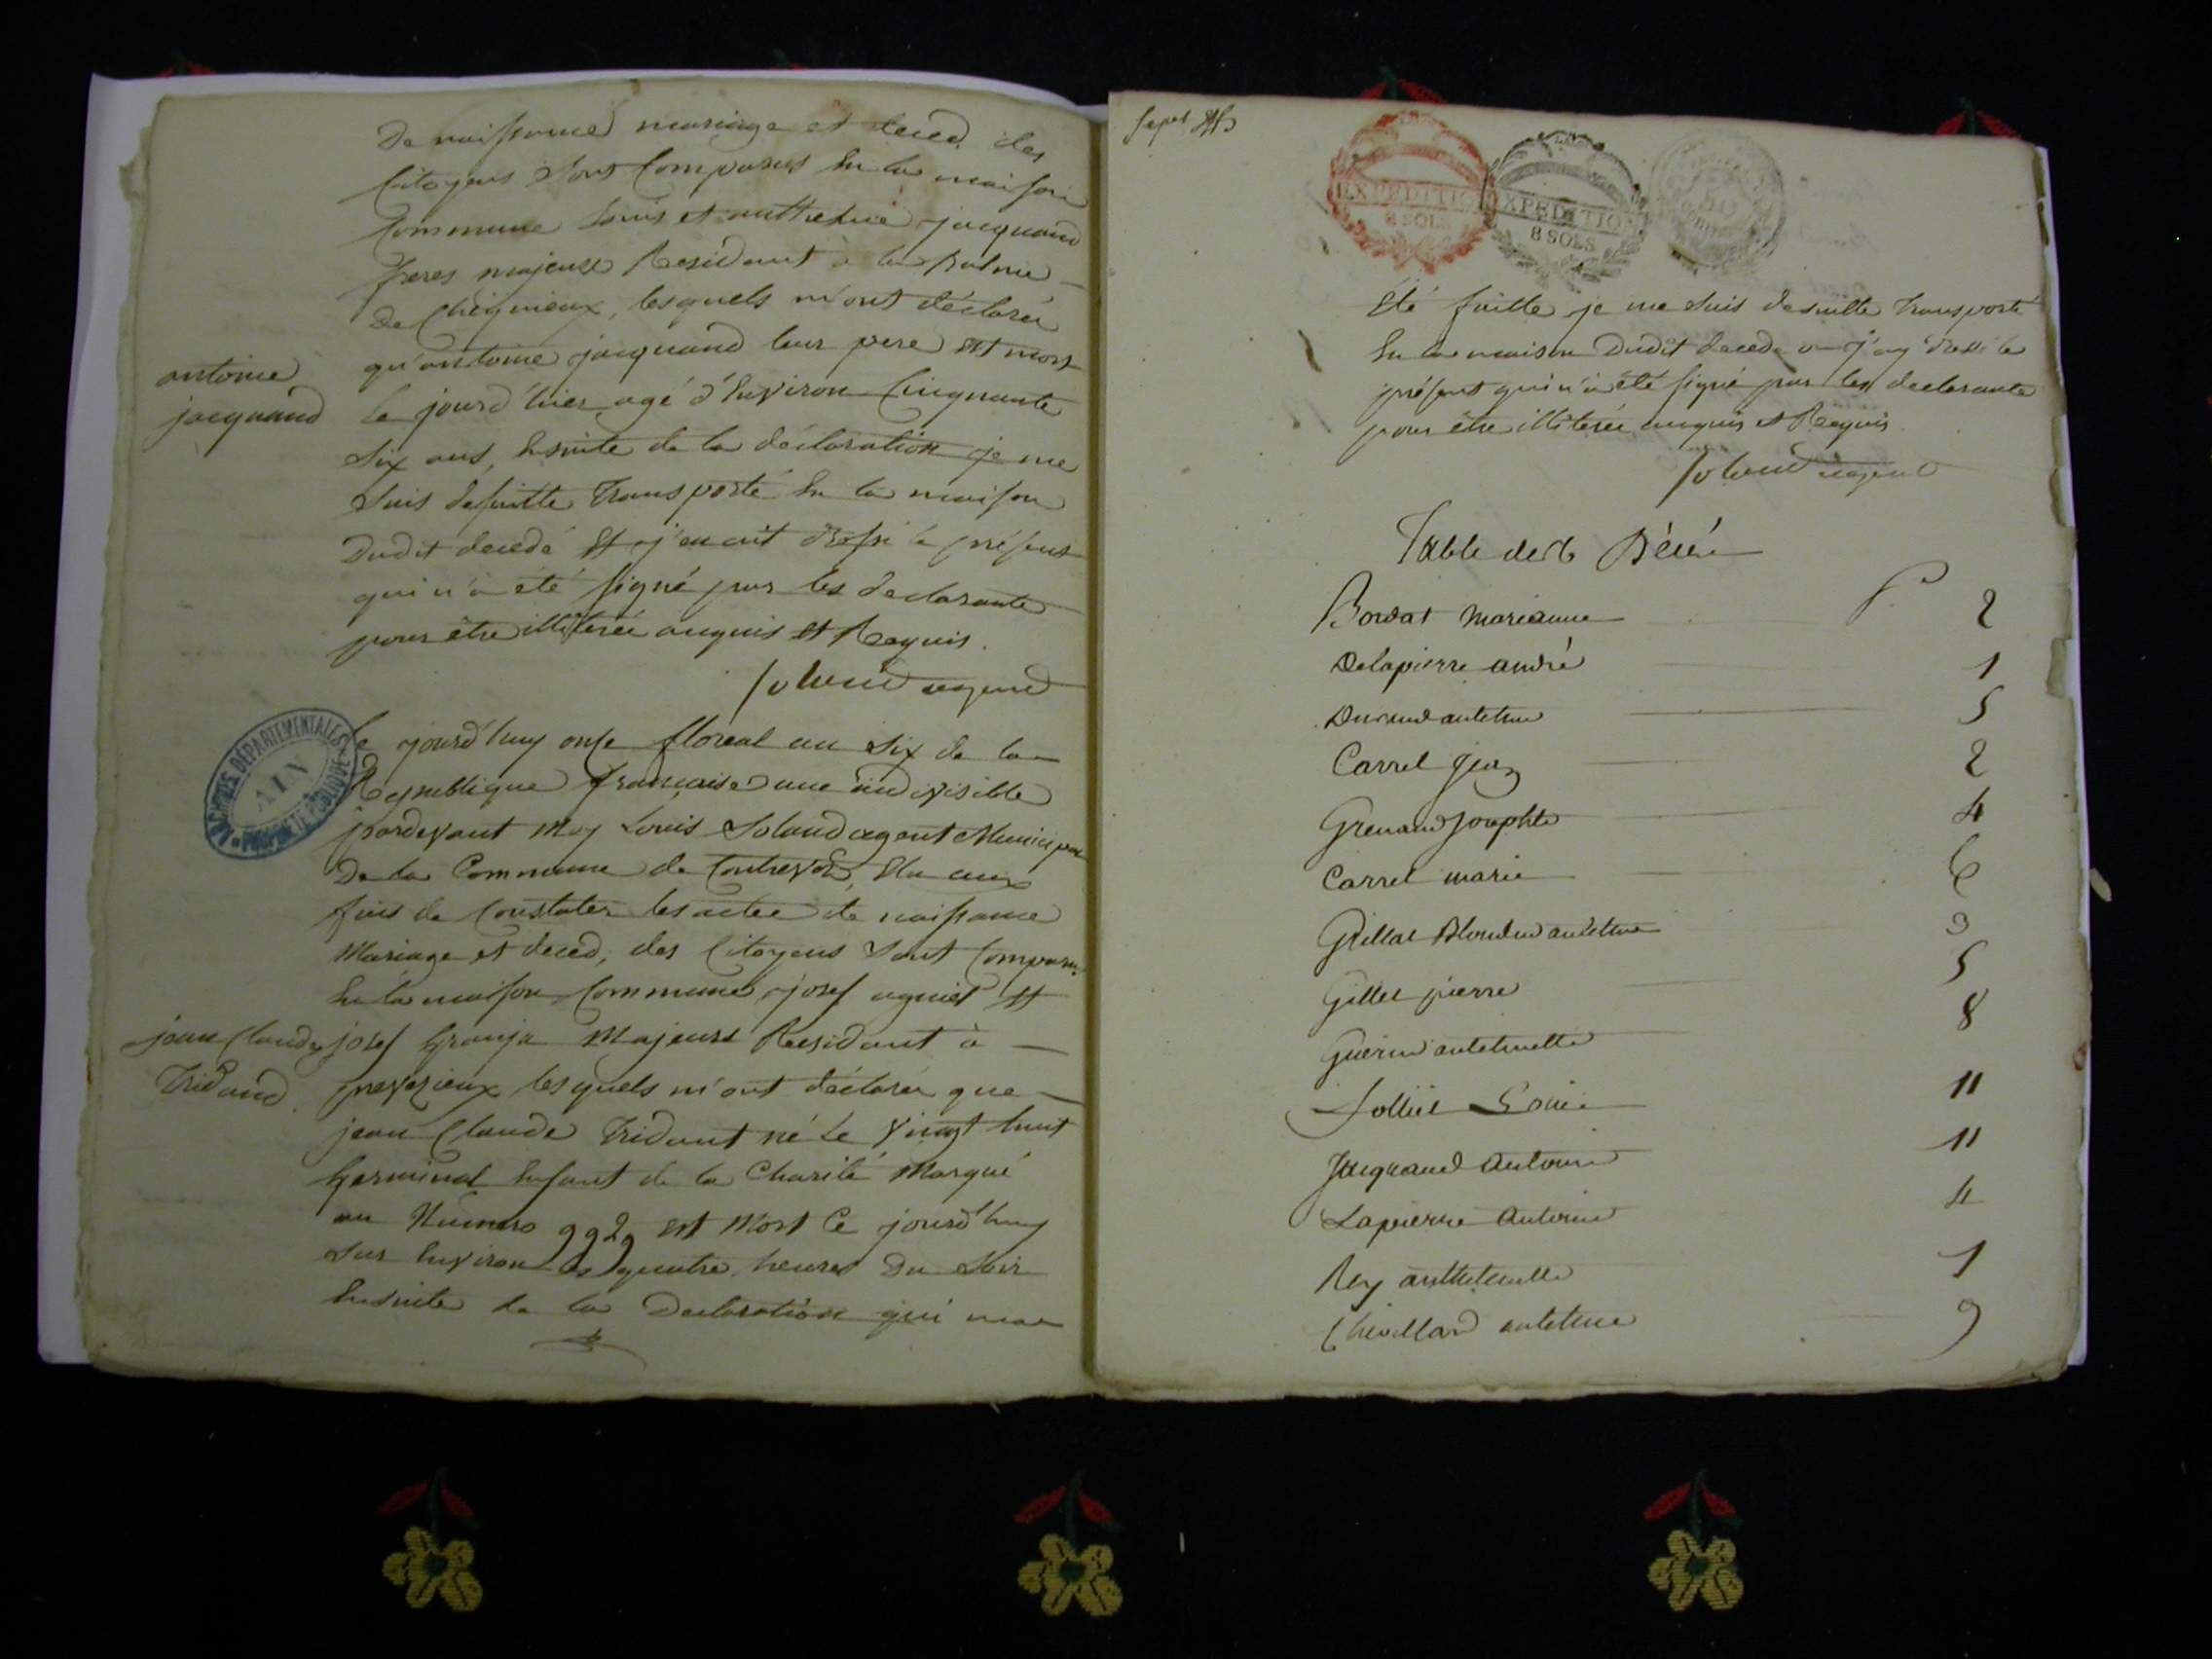 de naissance mariage et deced, des
Citoyens sont Comparus En la maison
Commune louis et anthelme jacquand
freres majeurs Residant à la balme
de Cheignieux, lesquels m'ont déclarée
antoine
jacquand
qu'antoine jacquand leur pere Est mort
le jourd'hier, agé d'Environ Cinquante
Six ans, Ensuite de la déclaration je me
Suis desuitte Transporté En la maison
Dudit decedé Et j'en ait dressé le présent
qui n'a été signé par les declarants
pour être illiterée anquis Et Requis.
Soland agend
Ce jourd'huy onse floreal an Six de la
Republique française une indivisible
pardevant Moy Louis Soland agent Municipal
De la Commune de Contrevoz, Elu aux
fins de Constater les actes de naissance
Mariage et deced, des Citoyens Sont Comparu
En la maison Commune, josef agniel Et
jean Claude
Tridand.
josef Granja Majeurs Residant à
preverieux lesquels m'ont déclarée que
jean Claude Tridant né Le Vingt huit
Germinal Enfant de la Charité Marqué
au Numero 992, est Mort Ce jourd'huy
Sur Environ les quatre heures Du Soir
Ensuite de la Declaration qui m'a
ARCHIVES DÉPARTEMENTALES
AIN
PROPRIÉTÉ PUBLIQUE
EXPEDITION
8 SOLS
EXPEDITION
8 SOLS
été faitte je me suis desuitte Transporté
En la maison Dudit decede j'ay dressé le
présent qui n'a été signé par les declarants
pour être illiterée anquis et Requis
Soland agend
Table des Décés
Bordat marianne P. 2
Delapierre andré 1
Durand antelme 5
Carrel 2
Grenaud Josephte 4
Carrel marie 6
Grillat Blondin antelme 3
Gillet pierre 5
Guérin antelmette 8
Jolliet Louis 11
Jacquand Antoine 11
Lapierre Antoine 4
Rey anthelmette 1
Chevillard antelme 9